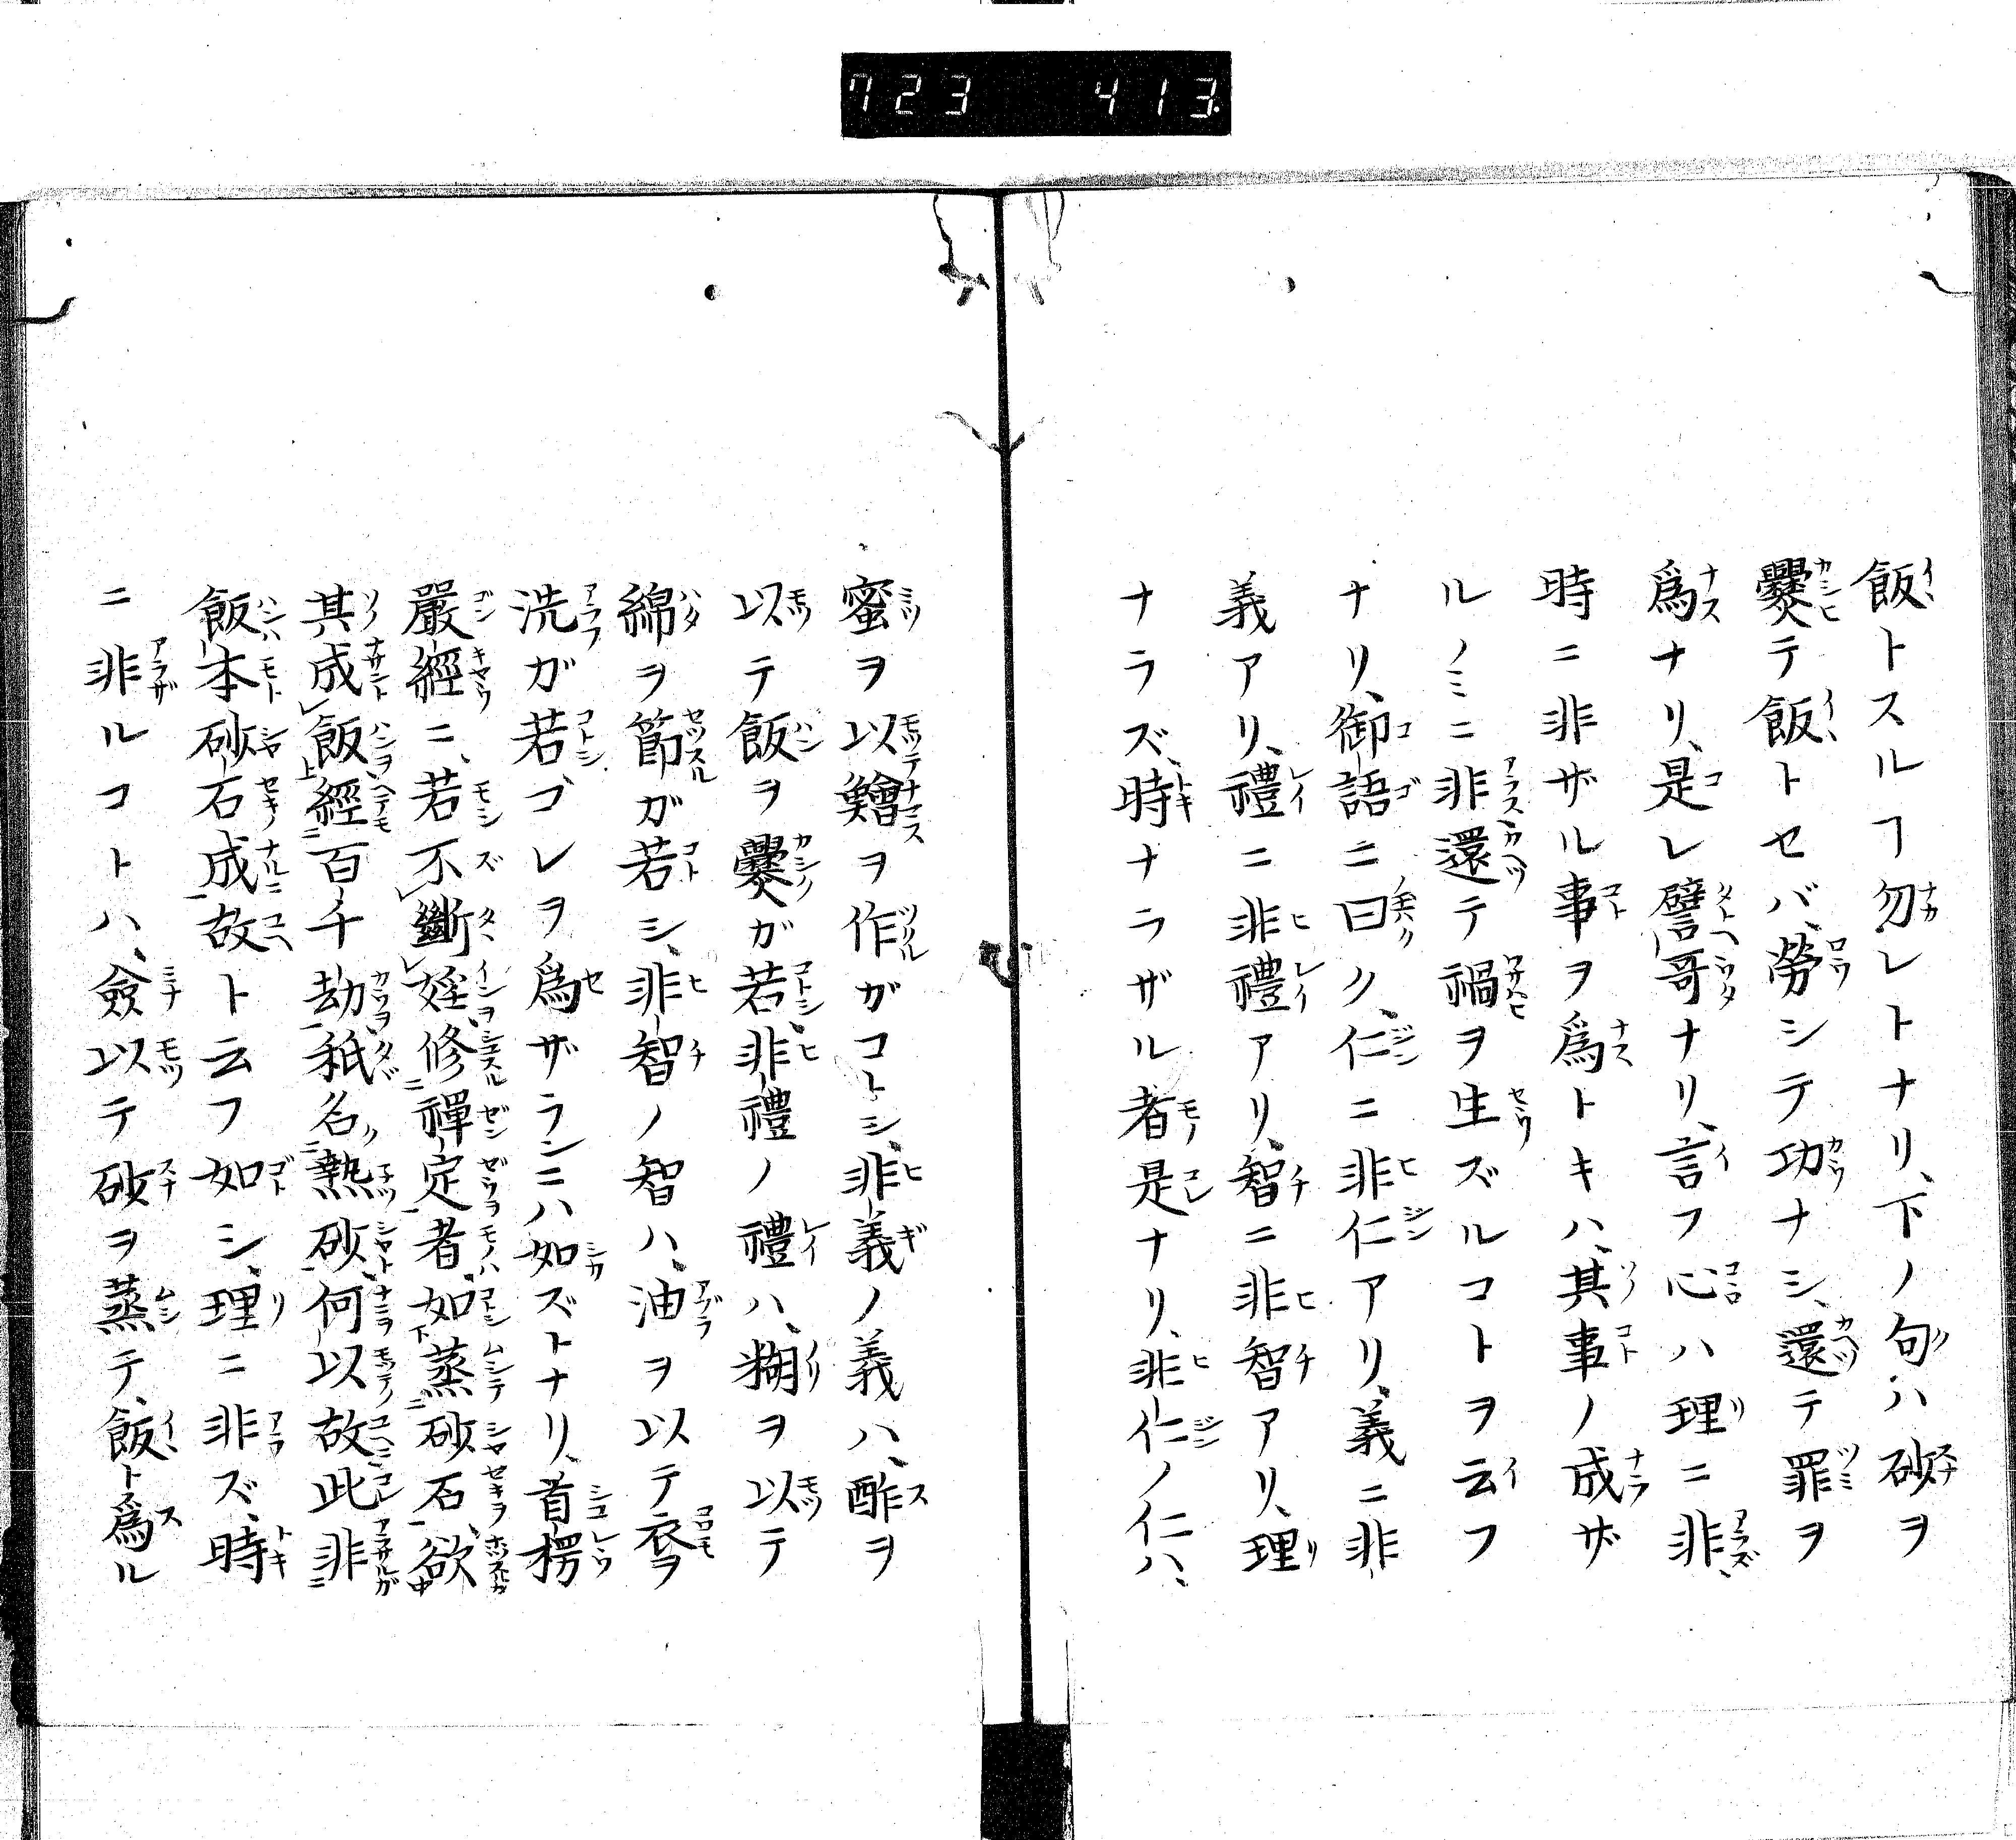 723 413
飯トスルヿ勿レトナリ、下ノ句ハ砂ヲ
爨テ飯トセバ、勞シテ功ナシ、還テ罪ヲ
爲ナリ、是レ譬哥ナリ、言フ心ハ理ニ非、
時ニ非ザル事ヲ爲トキハ、其事ノ成ザ
ルノミニ非、還テ禍ヲ生ズルコトヲ云フ
ナリ、御語ニ曰ク、仁ニ非仁アリ、義ニ非
義アリ、禮ニ非禮アリ、智ニ非智アリ、理
ナラズ、時ナラザル者是ナリ、非仁ノ仁ハ、
蜜ヲ以鱠ヲ作ガコトシ、非義ノ義ハ、酢ヲ
以テ飯ヲ爨ガ若、非禮ノ禮ハ、糊ヲ以テ
綿ヲ節ガ若シ、非智ノ智ハ、油ヲ以テ衣ヲ
洗ガ若、ゴレヲ爲ザランニハ如ズトナリ、首楞
嚴經ニ、若不斷婬、修禪定者、如蒸砂石、欲
其成飯經百千劫秖名熱砂、何以故此非
飯本砂石成故ト云フ如シ、理ニ非ズ、時
ニ非ルコトハ、僉以テ砂ヲ蒸テ、飯ト爲ル